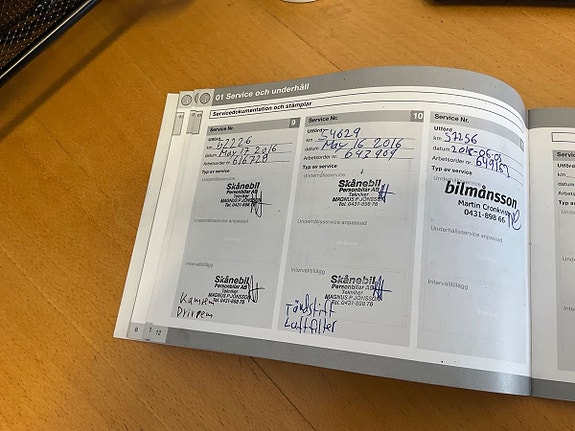 01 Service och underhåll
Servicedokumentation och stämplar
Service Nr. 9
Utförd
km 52226
datum May 17 2016
Arbetsorder nr. 616728
Typ av service
Underhållsservice
Skånebil
Personbilar AB
Tekniker
MAGNUS P JÖNSSON
Tel. 0431-898 76
Underhållsservice anpassad
Intervalltillägg
Skånebil
Personbilar AB
Tekniker
MAGNUS P JÖNSSON
Tel. 0431-898 76
Kamrem
Drivrem
Service Nr. 10
Utförd
km 54629
datum May 16 2016
Arbetsorder nr. 643904
Typ av service
Underhållsservice
Skånebil
Personbilar AB
Tekniker
MAGNUS P JÖNSSON
Tel. 0431-898 76
Underhållsservice anpassad
Intervalltillägg
Skånebil
Personbilar AB
Tekniker
MAGNUS P JÖNSSON
Tel. 0431-898 76
Tändstift
Luftfilter
Service Nr.
Utförd
km 57256
datum
Arbetsorder nr.
Typ av service
Underhållsservice
bilmånsson
Martin Cronkvist
0431-898 66
Underhållsservice anpassad
Intervalltillägg
Service
Utförd
km
datum
Arbets
Typ av
Under
8
1
12